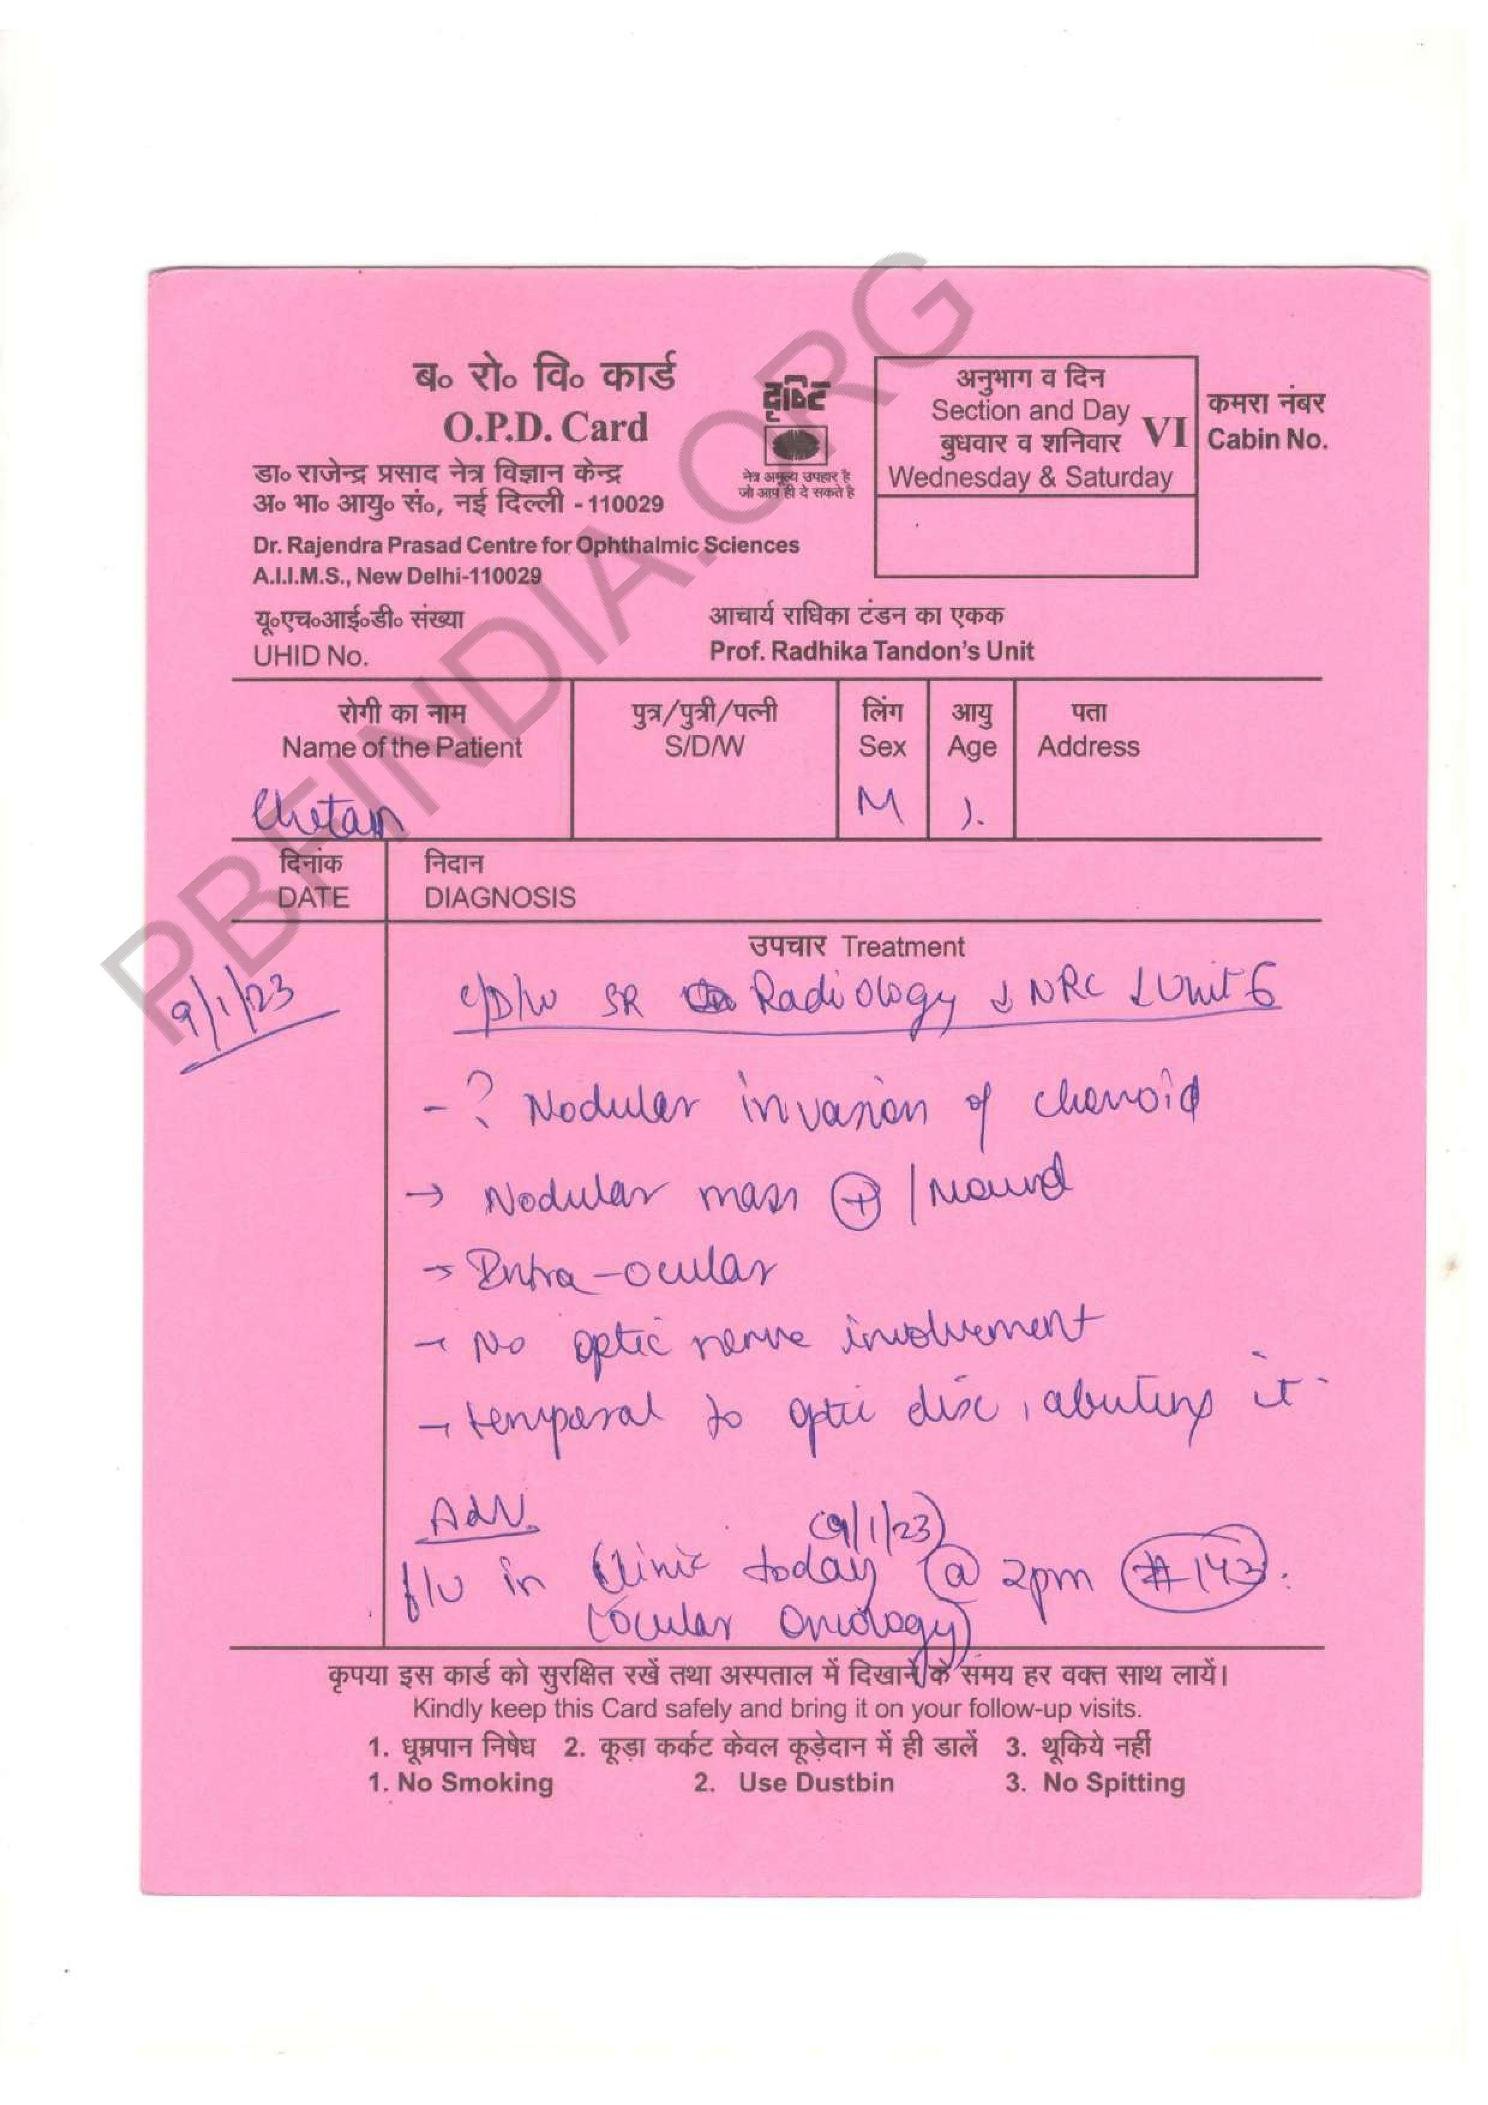 ब० रो० वि० कार्ड
O.P.D. Card
डा० राजेन्द्र प्रसाद नेत्र विज्ञान केन्द्र
अ० भा० आयु० सं०, नई दिल्ली - 110029
Dr. Rajendra Prasad Centre for Ophthalmic Sciences
A.I.I.M.S., New Delhi-110029
दृष्टि
नेत्र अमूल्य उपहार है
जो आप ही दे सकते है
अनुभाग व दिन
Section and Day
बुधवार व शनिवार VI
Wednesday & Saturday
कमरा नंबर
Cabin No.
यू०एच०आई०डी० संख्या
UHID No.
आचार्य राधिका टंडन का एकक
Prof. Radhika Tandon's Unit
रोगी का नाम पुत्र/पुत्री/पत्नी लिंग आयु पता
Name of the Patient S/D/W Sex Age Address
Chetan M
दिनांक निदान
DATE DIAGNOSIS
उपचार Treatment
9/1/23
C/D/W SR Radiology NRC Unit 6
- ? Nodular invasion of choroid
→ Nodular mass (+) / Mound
→ Intra-ocular
→ No optic nerve involvement
→ temporal to optic disc, abuting it
Adv.
(9/1/23)
f/u in Clinic today @ 2pm #143.
(Ocular Oncology)
कृपया इस कार्ड को सुरक्षित रखें तथा अस्पताल में दिखाने के समय हर वक्त साथ लायें।
Kindly keep this Card safely and bring it on your follow-up visits.
1. धूम्रपान निषेध 2. कूड़ा कर्कट केवल कूड़ेदान में ही डालें 3. थूकिये नहीं
1. No Smoking 2. Use Dustbin 3. No Spitting
PBFINDIA.ORG